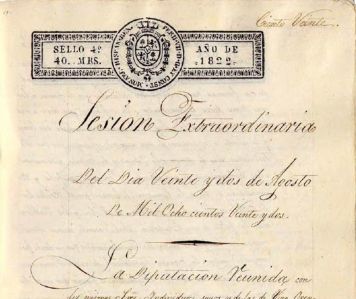 Ciento Veinte
SELLO 4º
40. MRS.
AÑO DE
1822.
Sesion Extraordinaria
Del Dia Veinte y dos de Agosto
De Mil Ocho cientos Veinte y dos.
La Diputacion Reunida con